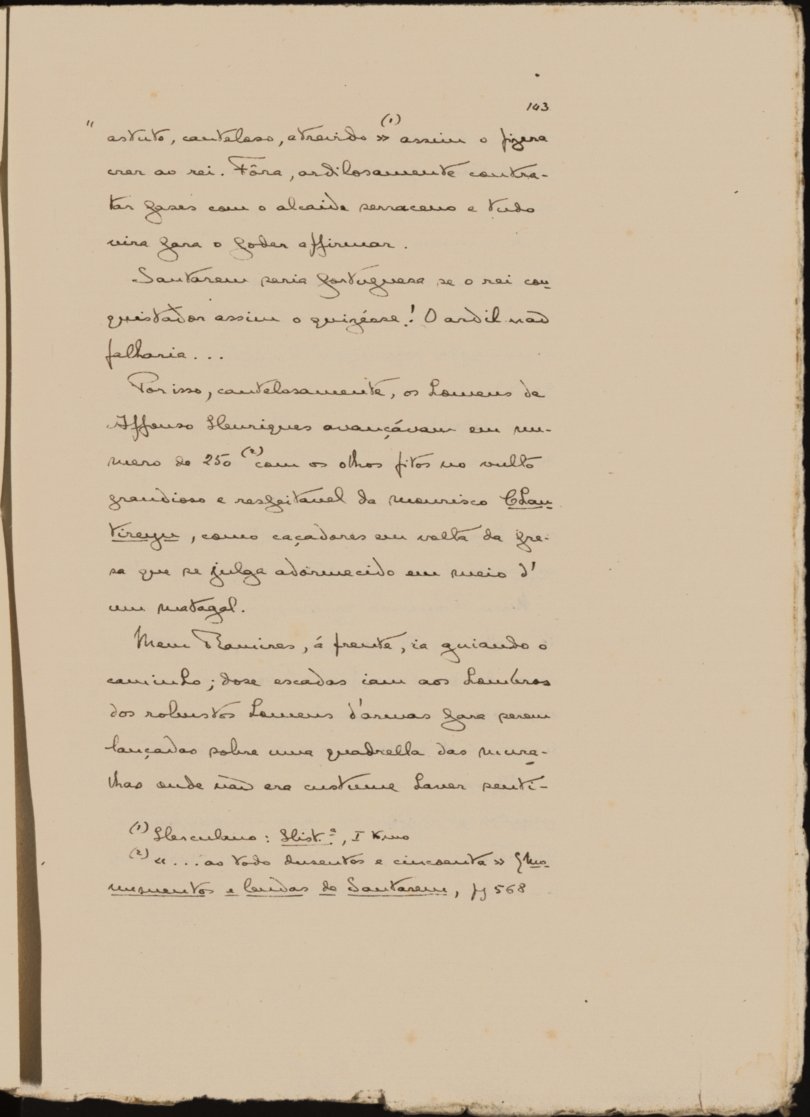 103
" astuto, cauteloso, atrevido » (1) assim o fizera
crer ao rei. Fôra, ardilosamente contra-
tar pases com o alcaide serraceno e tudo
vira para o poder affirmar.
Santarem seria portuguesa se o rei con
quistador assim o quizésse! O ardil não
falharia...
Por isso, cautelosamente, os homens de
Affonso Henriques avançávam em nu-
mero de 250 (2) com os olhos fitos no vulto
grandioso e respeitavel da mourisco Chan
tireyn, como caçadores em volta da pre-
sa que se julga adormecido em meio d'
um matagal.
Mem Ramires, á frente, ia guiando o
caminho; dose escadas iam aos hombros
dos robustos homens d'armas para serem
lançadas sobre uma quadrella das mura-
lhas onde não era custume haver senti-
(1) Herculano: Hist.ª, I tomo
(2) «... ao todo dusentos e cincoenta» Mo
numentos e lendas de Santarem, pg 568